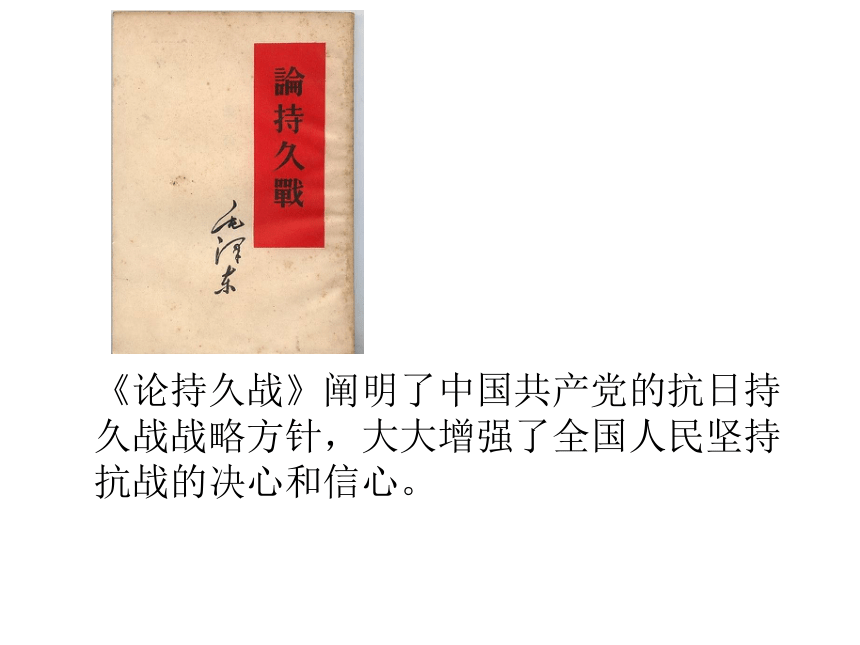 論持久戰
毛泽东
《论持久战》阐明了中国共产党的抗日持
久战战略方针，大大增强了全国人民坚持
抗战的决心和信心。